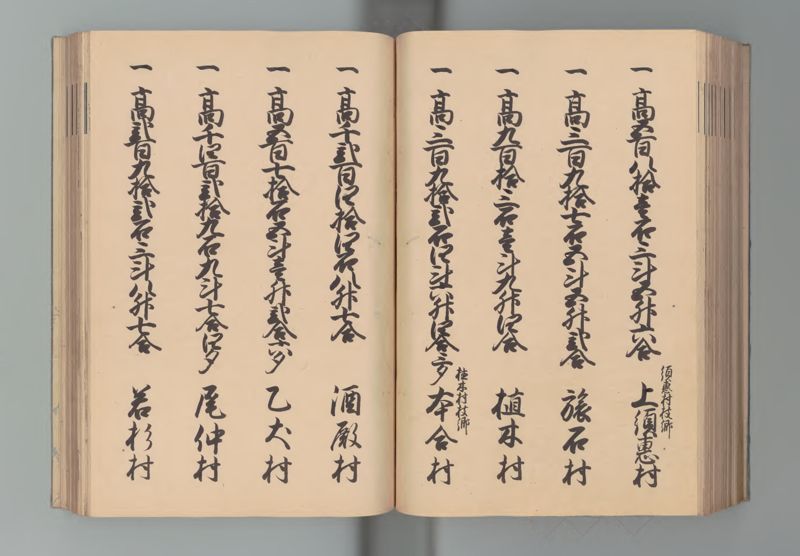 一 高五百八拾壱石三斗五升六合 須惠村枝郷 上須惠村
一 高三百九拾七石五斗五升弐合 旅石村
一 高九百拾三石壱斗九升四合 植木村
一 高三百九拾弐石四斗六升四合三夕 植木村枝郷 本合村
一 高千弐百四拾四石八升七合 酒殿村
一 高五百七拾石五斗壱升弐合六夕 乙犬村
一 高千四百弐拾九石九斗七合四夕 尾仲村
一 高弐百九拾弐石三斗八升七合 若杉村